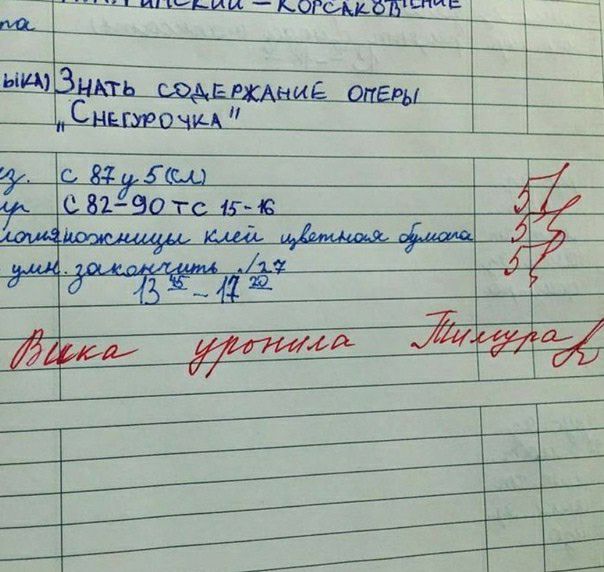 Римский – Корсаков
ыка) Знать содержание оперы
„Снегурочка"
С 87 у 5 (сл) 5
С 82–90 ТС 15–16 5
логия ножницы клей цветная бумага 5
закончить
13 45 – 17 20
Вика уронила Тимура